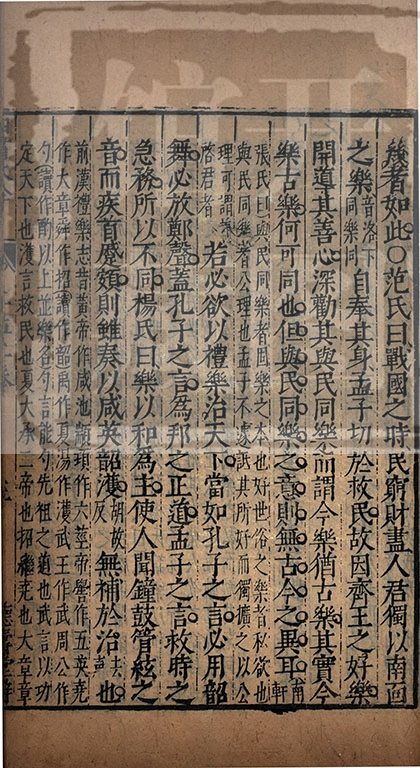 者如此○范氏曰戰國之時民窮財盡人君獨以南面
之樂音洛下同樂同自奉其身孟子切於救民故因齊王之好樂
開導其善心深勸其與民同樂而謂今樂猶古樂其實今
樂古樂何可同也但與民同樂之意則無古今之異耳南軒
張氏曰與民同樂者固樂之本也好世俗之樂者私欲也
與民同樂者公理也孟子不遽詆其所好而獨擴之以公
理可謂善啓君者若必欲以禮樂治天下當如孔子之言必用韶
舞必放鄭聲蓋孔子之言為邦之正道孟子之言救時之
急務所以不同楊氏曰樂以和為主使人聞鐘鼓管絃之
音而疾首蹙頞則雖奏以咸英韶濩胡故反無補於治去聲也
前漢禮樂志昔黃帝作咸池顓頊作六莖帝嚳作五英堯
作大章舜作招讀作韶禹作夏湯作濩武王作武周公作
勺讀作酌以上並樂名勺言能勺先祖之道也武言以功
定天下也濩言救民也夏大承二帝也招繼堯也大章章